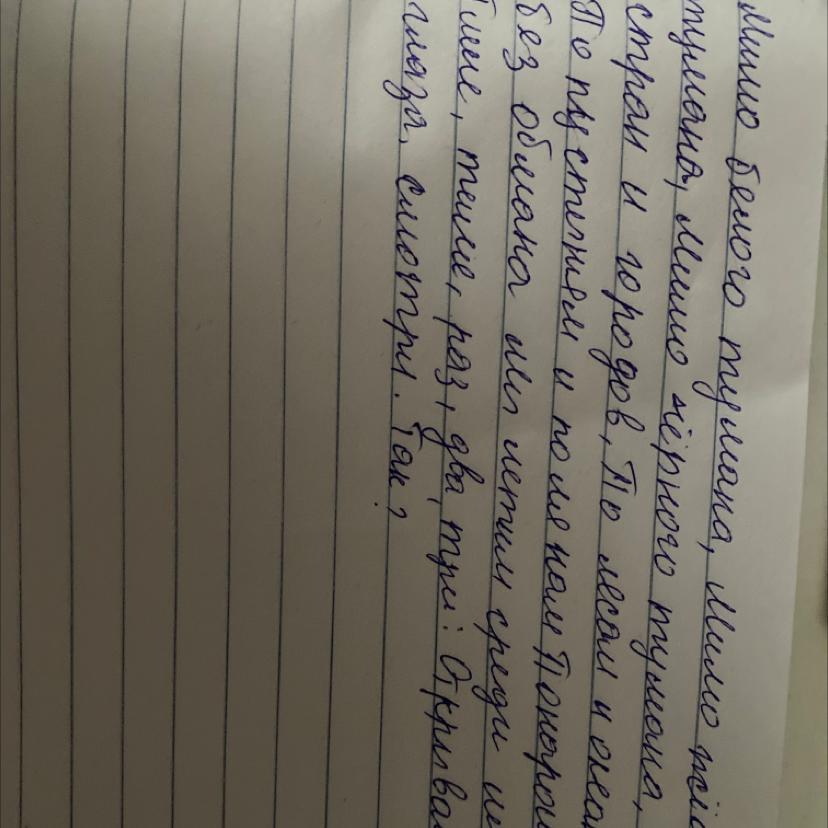 Мимо белого тумана, Мимо
тумана, Мимо чёрного тумана,
стран и городов, По лесам и
По пустыням и полянам
без обмана мы летим среди
тише, тише, раз, два, три!
глаза, смотри. Так?